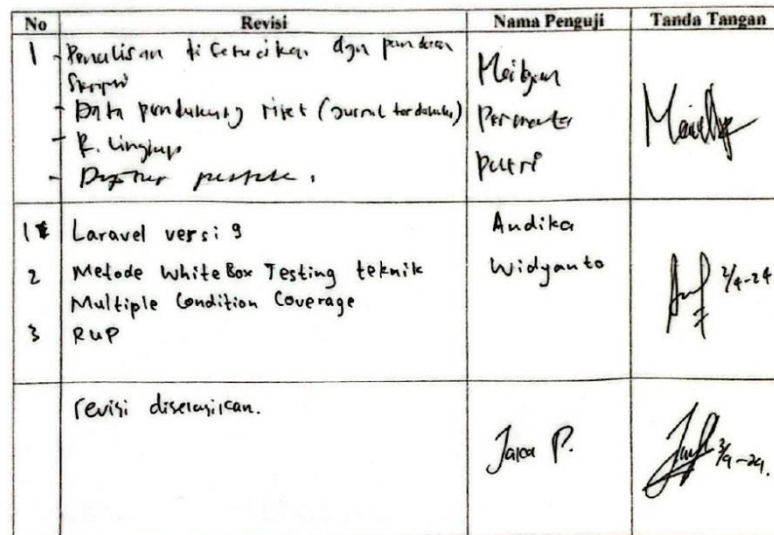 No Revisi Nama Penguji Tanda Tangan
1 - Penulisan di sesuaikan dgn panduan
Skripsi
- Data pendukung riset (Jurnal terdahulu)
- R. Lingkup
- Daftar pustaka.
Putri
1 Laravel versi 9
2 Metode WhiteBox Testing teknik
Multiple Condition Coverage
3 RUP
Andika
Widyanto
2/4-24
revisi diselesaikan.
Jaka P.